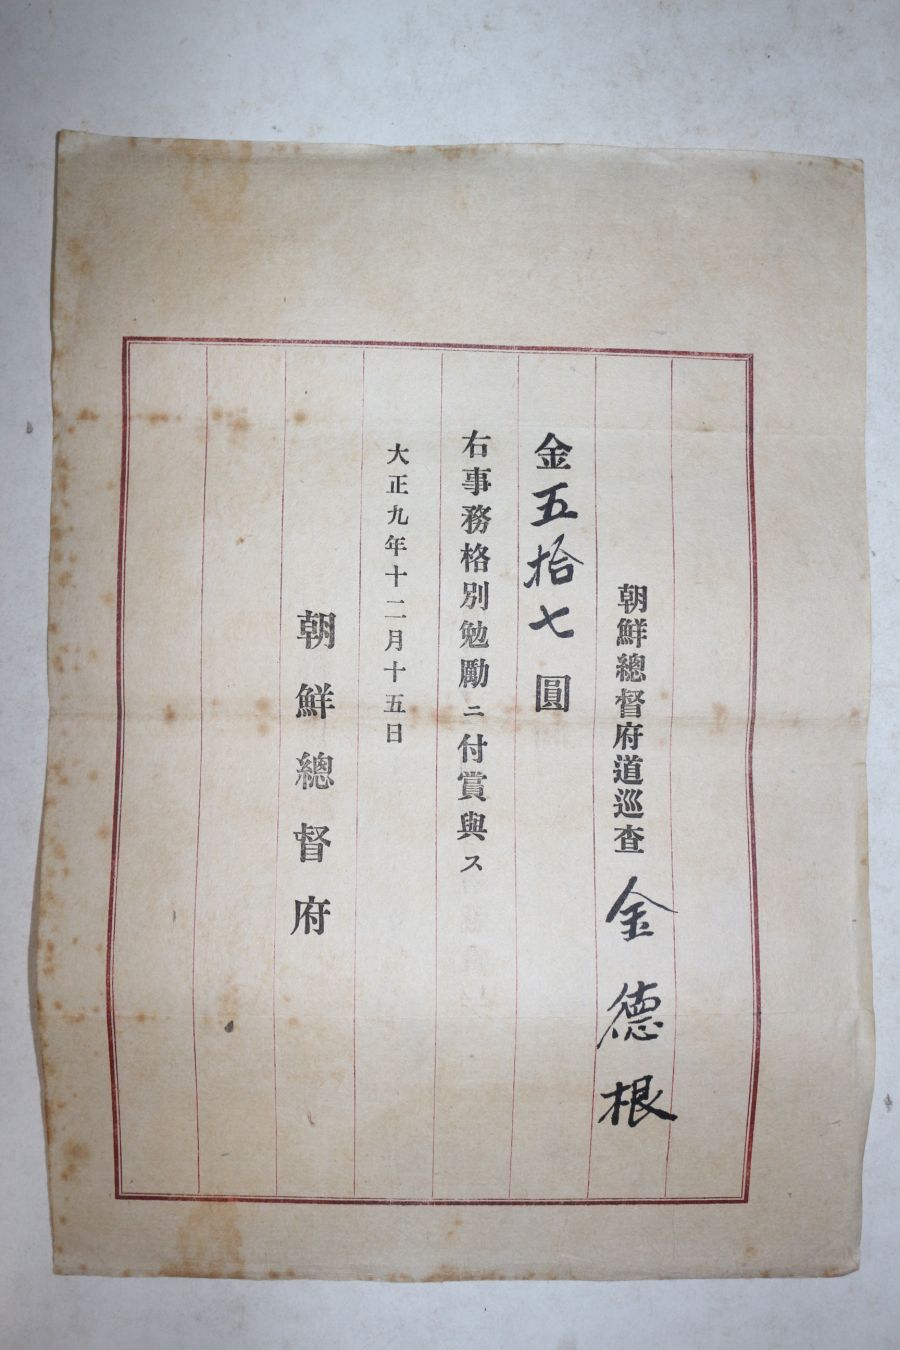 朝鮮總督府道巡査 金德根
金五拾七圓
右事務格別勉勵ニ付賞與ス
大正九年十二月十五日
朝鮮總督府